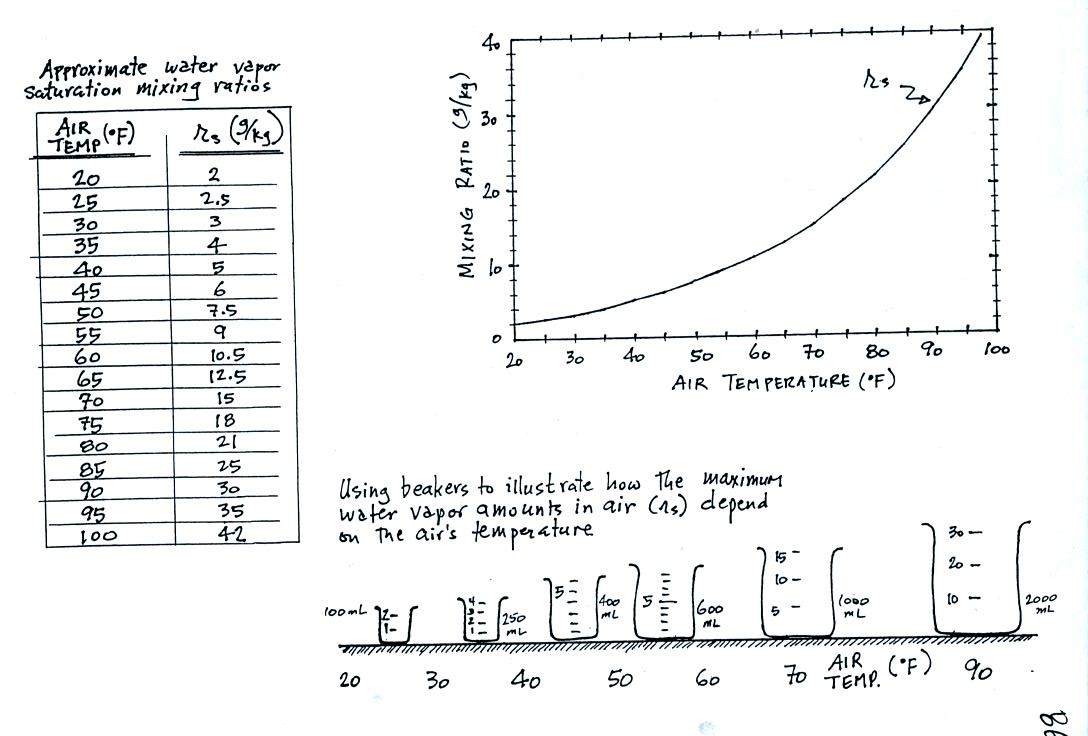 Approximate water vapor
saturation mixing ratios
AIR TEMP (°F) rs (g/kg)
20 2
25 2.5
30 3
35 4
40 5
45 6
50 7.5
55 9
60 10.5
65 12.5
70 15
75 18
80 21
85 25
90 30
95 35
100 42
MIXING RATIO (g/kg)
40
30
20
10
0
rs
20 30 40 50 60 70 80 90 100
AIR TEMPERATURE (°F)
Using beakers to illustrate how the maximum
water vapor amounts in air (rs) depend
on the air's temperature
100mL
2
1
4
3
2
1
250 mL
5
400 mL
5
600 mL
15
10
5
1000 mL
30
20
10
2000 mL
20 30 40 50 60 70 AIR TEMP. (°F) 90